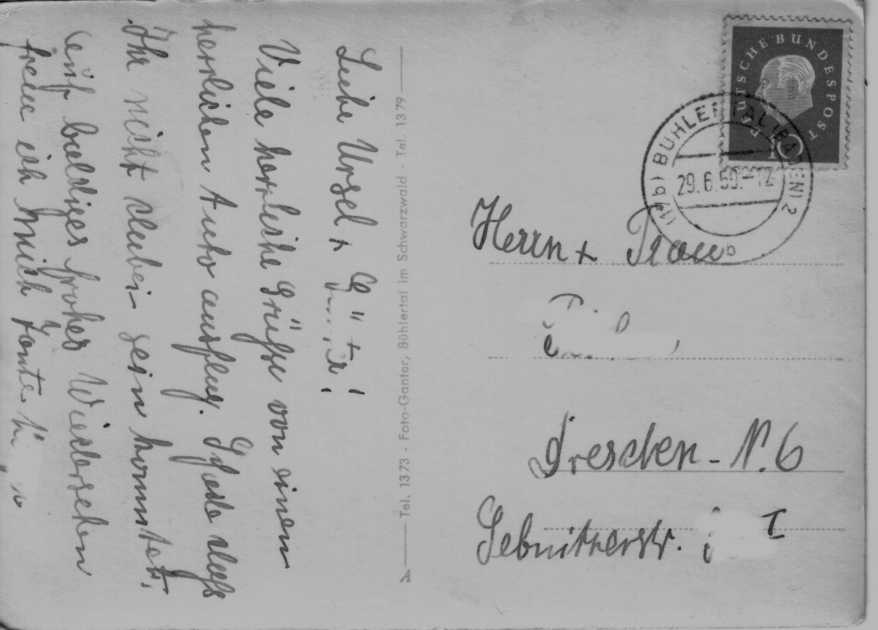 Liebe Ursel +
Viele herrliche Grüße von einem
herrlichen Autoausflug. Schade daß
Ihr nicht dabei sein konntet.
Auf baldiges frohes Wiedersehen
freue ich mich Tante
Tel. 1373 - Foto-Ganter, Bühlertal im Schwarzwald - Tel. 1379
DEUTSCHE BUNDESPOST
10
(17b) BÜHLERTAL (BADEN) 2
29.6.59.-12
b
Herrn + Frau
Dresden - N. 6
Sebnitzerstr. I